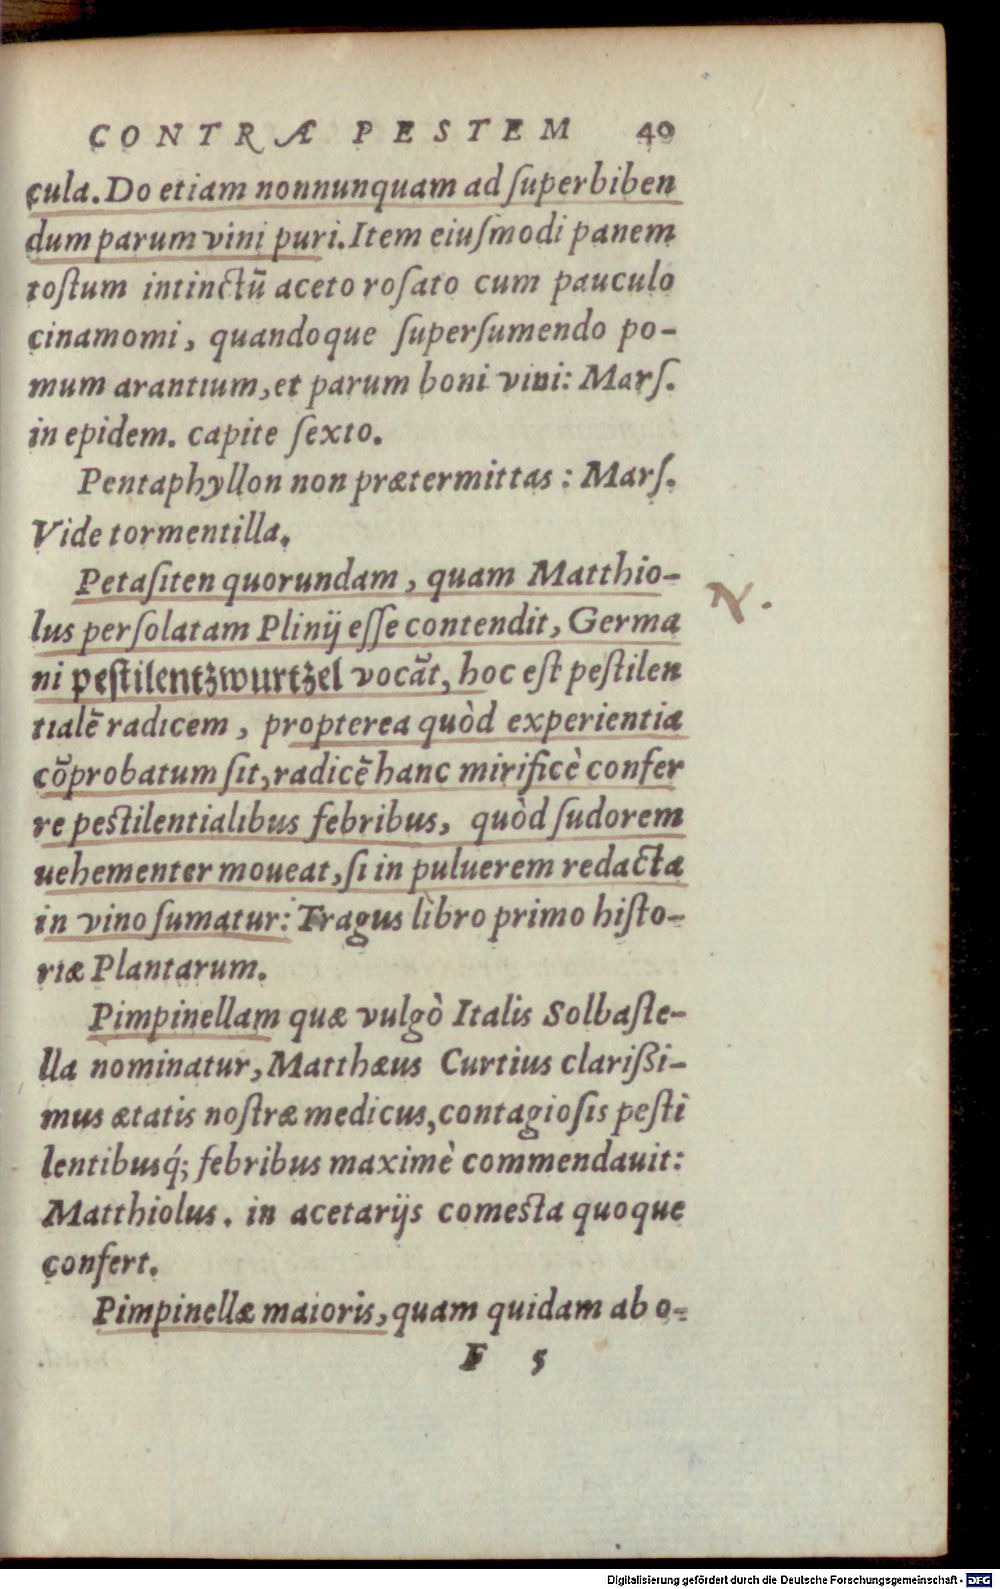 CONTRA PESTEM 40
cula. Do etiam nonnunquam ad ſuperbiben
dum parum vini puri. Item eiuſmodi panem
toſtum intinctū aceto roſato cum pauculo
cinamomi, quandoque ſuperſumendo po-
mum arantium, et parum boni vini: Marſ.
in epidem. capite ſexto.
Pentaphyllon non prætermittas: Marſ.
Vide tormentilla.
Petaſiten quorundam, quam Matthio-
lus perſolatam Plinij eſſe contendit, Germa
ni peſtilentzwurtzel vocāt, hoc eſt peſtilen
tialē radicem, propterea quòd experientia
cōprobatum ſit, radicē hanc mirificè confer
re peſtilentialibus febribus, quòd ſudorem
uehementer moueat, ſi in puluerem redacta
in vino ſumatur: Tragus libro primo hiſto-
riæ Plantarum.
N.
Pimpinellam quæ vulgò Italis Solbaſte-
lla nominatur, Matthæus Curtius clarißi-
mus ætatis noſtræ medicus, contagioſis peſti
lentibusq́; febribus maximè commendauit:
Matthiolus. in acetarijs comeſta quoque
confert.
Pimpinellæ maioris, quam quidam ab o-
F 5
Digitalisierung gefördert durch die Deutsche Forschungsgemeinschaft - DFG